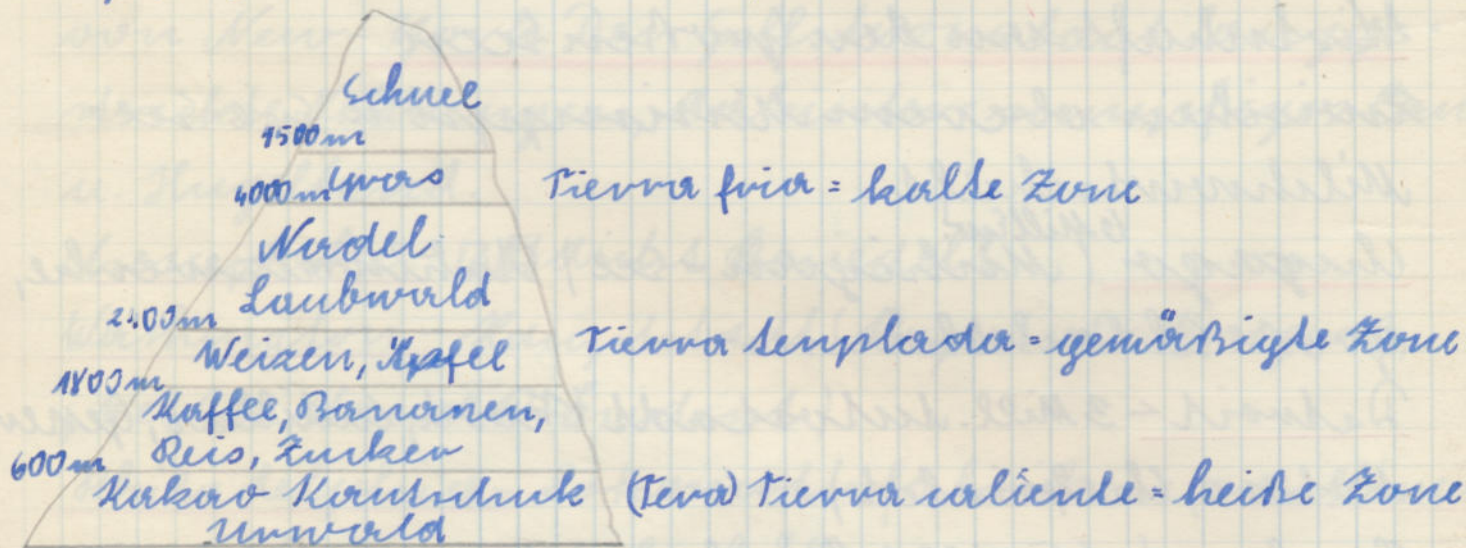 Schnee
4500m
4000m Gras Tierra fria = kalte Zone
Nadel-
Laubwald
2400m
Weizen, Äpfel Tierra templada = gemäßigte Zone
1800m
Kaffee, Bananen,
600m Reis, Zucker
Kakao Kautschuk (Tera) Tierra caliente = heiße Zone
Urwald